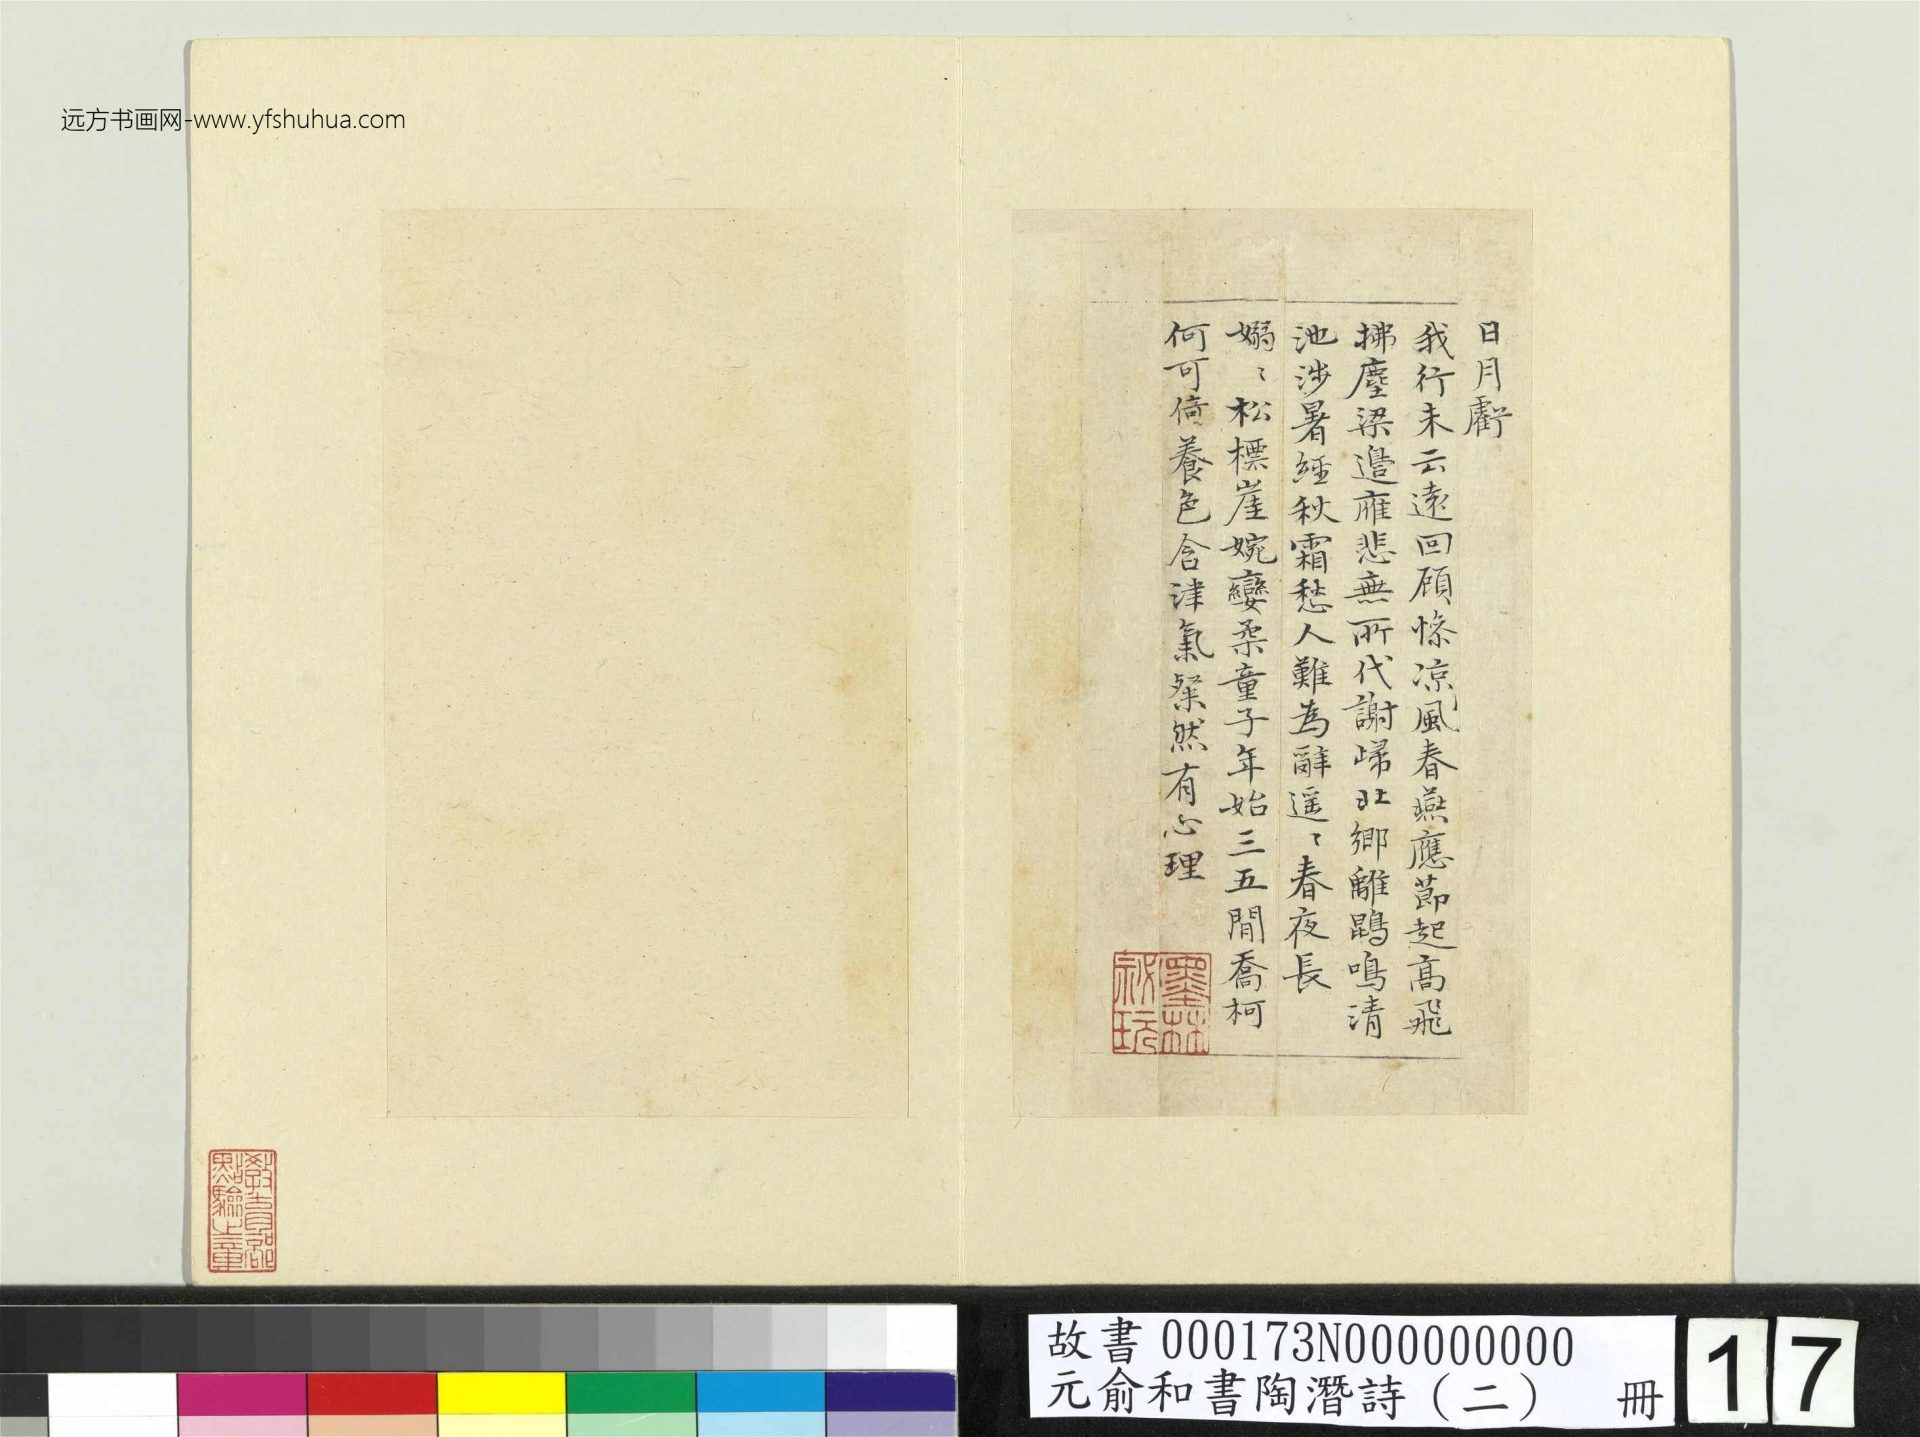 远方书画网-www.yfshuhua.com
日月虧
我行未云遠回顧慘凉風春燕應莭起高飛
拂塵梁邉雁悲無所代謝歸北鄉離鵾鳴清
池涉暑經秋霜愁人難為辭遥〻春夜長
嫋〻松標崖婉孌柔童子年始三五間喬柯
何可倚養色含津氣粲然有心理
墨林
祕玩
教育部
點驗之章
故書 000173N000000000
元俞和書陶潛詩（二） 冊
17